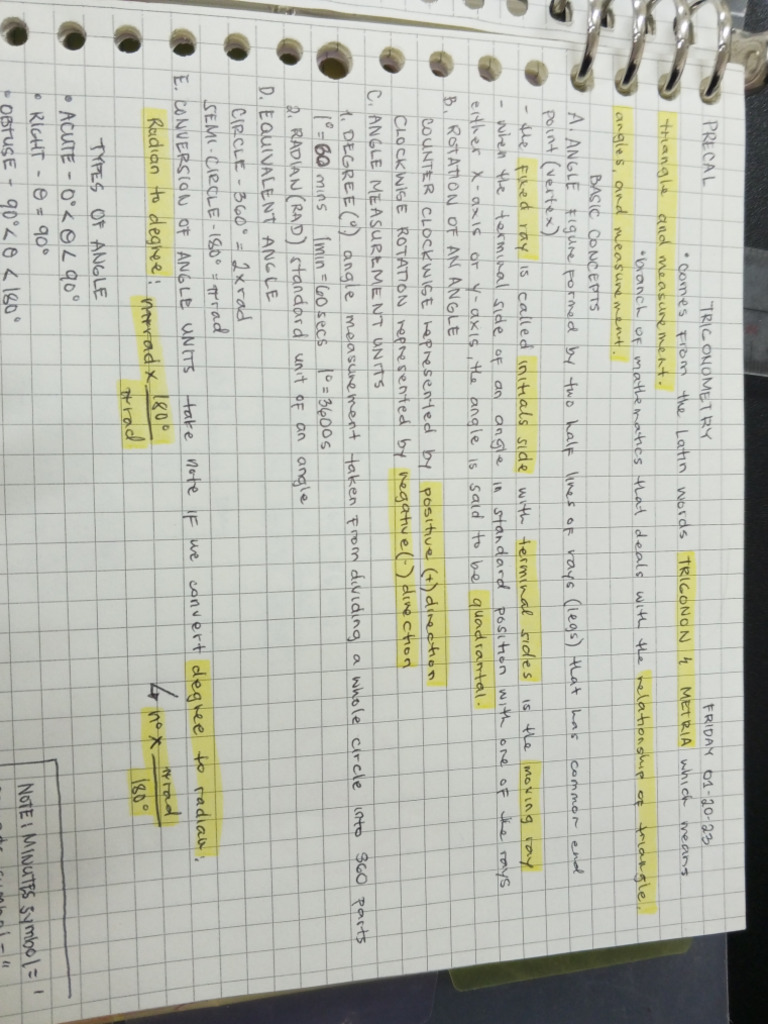 PRECAL TRIGONOMETRY FRIDAY 01-20-23
• comes from the Latin words TRIGONON & METRIA which means
triangle and measurement.
• branch of mathematics that deals with the relationship of triangle,
angles, and measurement.
BASIC CONCEPTS
A. ANGLE figure formed by two half lines of rays (legs) that has common end
point (vertex)
- the fixed ray is called initials side with terminal sides is the moving ray
- when the terminal side of an angle in standard position with one of the rays
either x-axis or y-axis, the angle is said to be quadrantal.
B. ROTATION OF AN ANGLE
COUNTER CLOCKWISE represented by positive (+) direction
CLOCKWISE ROTATION represented by negative (-) direction
C. ANGLE MEASUREMENT UNITS
1. DEGREE (°) angle measurement taken from dividing a whole circle into 360 parts
1° = 60 mins 1min = 60 secs 1° = 3600s
2. RADIAN (RAD) standard unit of an angle
D. EQUIVALENT ANGLE
CIRCLE - 360° = 2πrad
SEMI-CIRCLE - 180° = πrad
E. CONVERSION OF ANGLE UNITS take note if we convert degree to radian:
Radian to degree: nπrad x 180° / πrad
↳ n° x πrad / 180°
TYPES OF ANGLE
• ACUTE - 0° < θ < 90°
• RIGHT - θ = 90°
• OBTUSE - 90° < θ < 180°
NOTE! MINUTES symbol = '
symbol = "